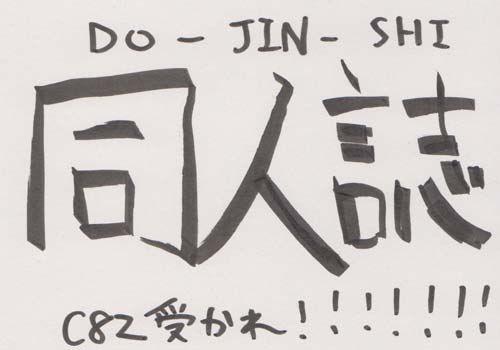 DO-JIN-SHI
同人誌
C82受かれ!!!!!!!